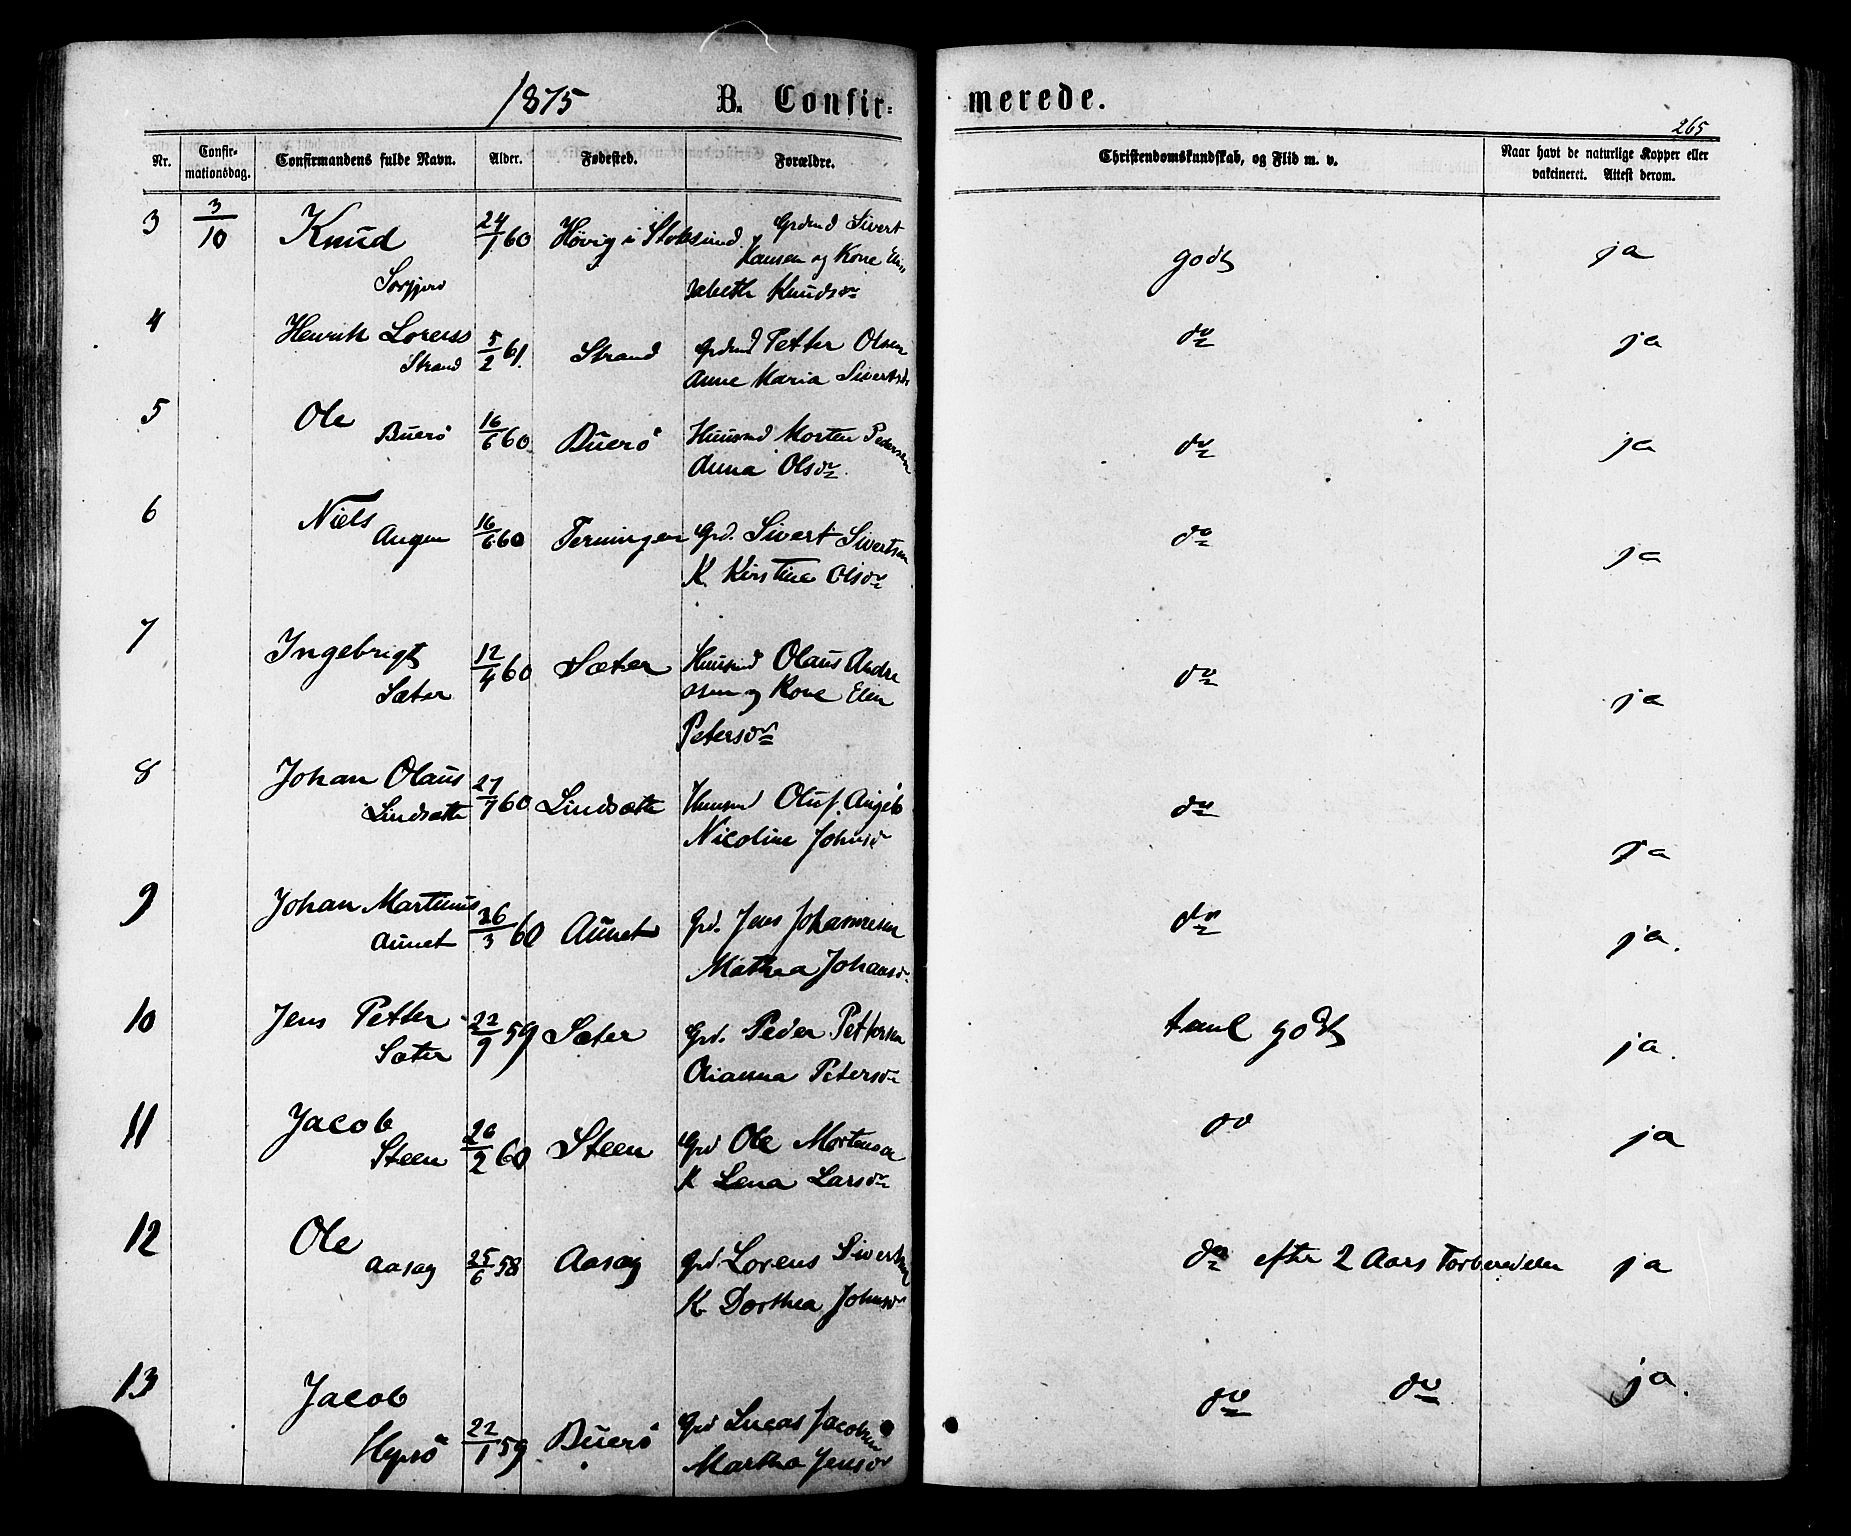 1875 B. Confir-
merede.
265
Nr.
Confir-
mationsdag.
Confirmandens fulde Navn.
Alder.
Fødested.
Forældre.
Christendomskundskab, og Flid m. v.
Naar havt de naturlige Kopper eller
vakcineret. Attest derom.
3 3/10 Knud 24/1 60 Høvig i Stoksund. Sivert
Hansen og Kone
Knudsdr
godt ja
4 Henrik Lorents 5/2 61. Strand Petter Olsen
Strand
Anne Maria Sivertsdr
do ja
5 Ole 16/6 60 Buerö Huusmd Morten Pedersen
Buerö
Anna Olsdr.
do ja
6 Niels 16/6 60 Terningen Grd. Sivert Sivertsen
Angen
K. Kirstine Olsdr
do ja
7 Ingebrigt 12/4 60 Sæter Huusmd Olaus Andre
Sæter
asen og Kone Elen
Petersdr
do ja
8 Johan Olaus 27/7 60 Lindsætte Huusmd Oluf
Lindsætte
Nicoline Johnsdr
do ja
9 Johan Martinus 26/3 60 Aunet Grd. Jens Johannesen
Aunet
Mathea Johansdr.
do ja.
10 Jens Petter 22/9 59 Sæter Grd. Peder Pettersen
Sæter
Olianna Petersdr
taal godt ja.
11 Jacob 26/2 60 Steen Grd Ole Mortensen
Steen
K Lena Larsdr
do ja
12 Ole 25/6 58 Aasag Grd Lorens Sivertsen
Aasag
K. Dorthea Johnsdr
do efter 2 Aars Forberedelse ja
13 Jacob 22/1 59 Buerö Grd Lucas Jacobsen
Hepsö
Martha Jensdr
do do ja.